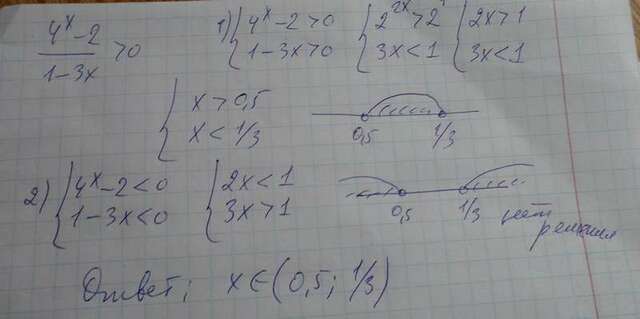 (4^x-2)/(1-3x) > 0 1) { 4^x-2>0 { 2^2x>2^1 { 2x>1
1-3x>0 3x<1 3x<1
{ x>0,5
x<1/3 0,5 1/3
2) { 4^x-2<0 { 2x<1
1-3x<0 3x>1 0,5 1/3 нет
решения
Ответ; x∈(0,5; 1/3)